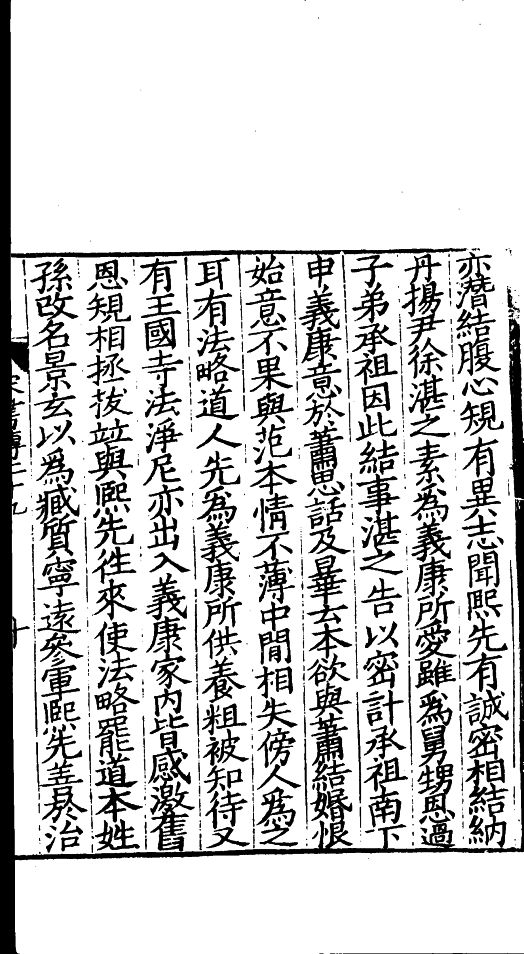 亦潛結腹心規有異志聞熙先有誠密相結納
丹揚尹徐湛之素為義康所愛雖為舅甥恩過
子弟承祖因此結事湛之告以密計承祖南下
申義康意於蕭思話及曅云本欲與蕭結婚恨
始意不果與范本情不薄中間相失傍人為之
耳有法略道人先為義康所供養粗被知待又
有王國寺法淨尼亦出入義康家內皆感激舊
恩規相拯拔竝與熙先徃來使法略罷道本姓
孫改名景玄以為臧質寧遠參軍熙先善於治